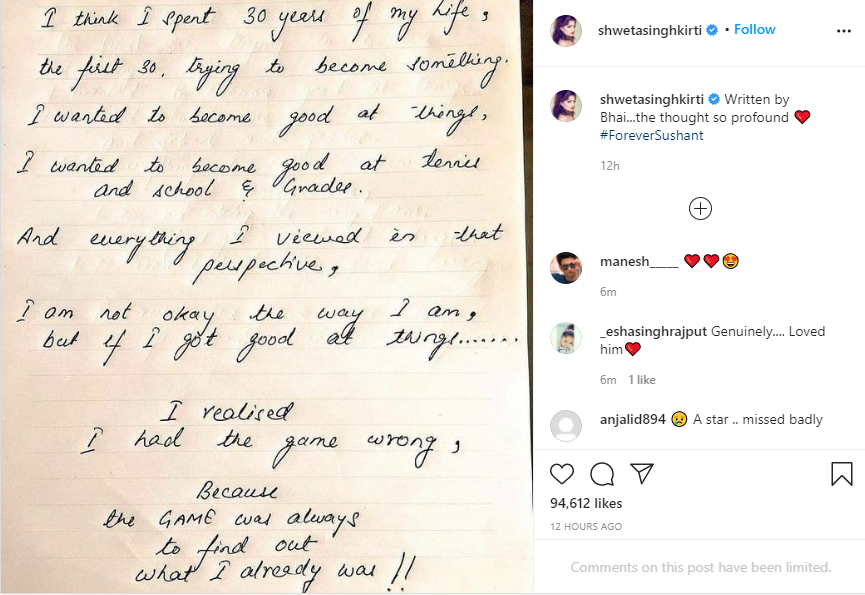 I think I spent 30 years of my life,
the first 30, trying to become something.
I wanted to become good at things,
I wanted to become good at tennis
and school & Grades.
And everything I viewed in that
perspective,
I am not okay the way I am,
but if I got good at things.......
I realised
I had the game wrong,
Because
the GAME was always
to find out
what I already was !!
shwetasinghkirti • Follow
shwetasinghkirti Written by
Bhai...the thought so profound ❤️
#ForeverSushant
12h
manesh_____ ❤️❤️😍
6m
_eshasinghrajput Genuinely.... Loved
him❤️
6m 1 like
anjalid894 😢 A star .. missed badly
94,612 likes
12 HOURS AGO
Comments on this post have been limited.